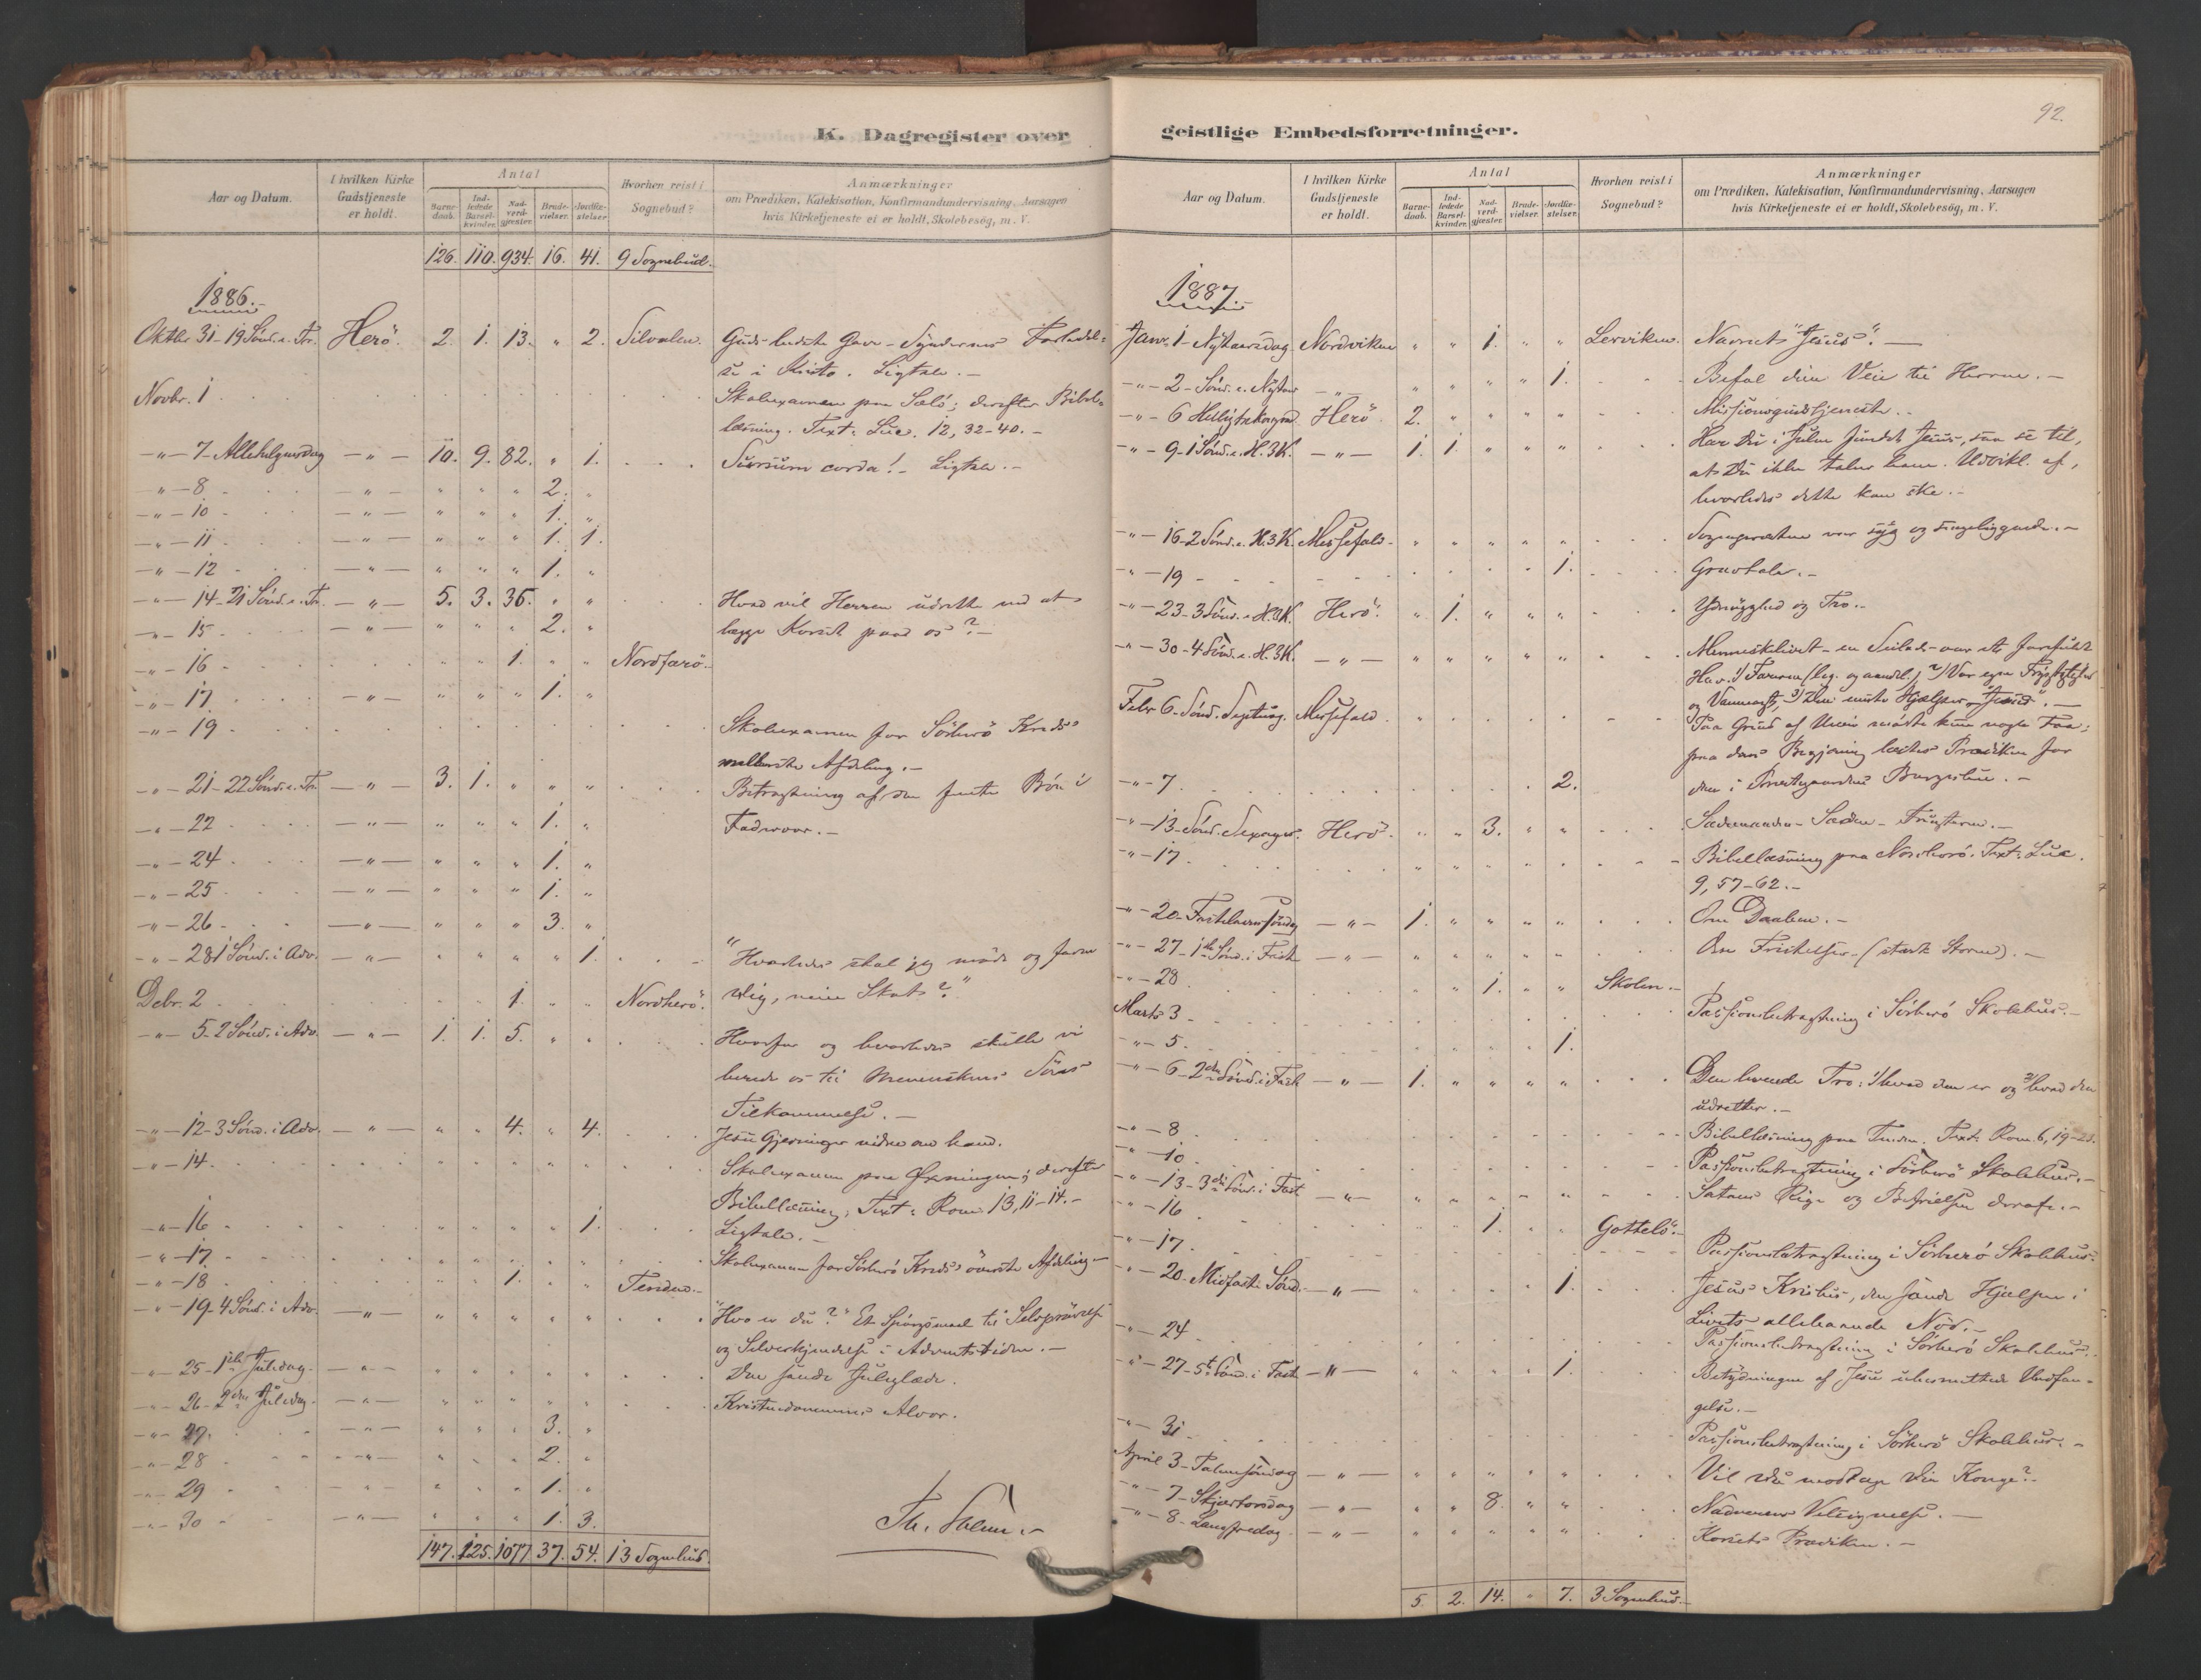 92.
K. Dagregister over
Aar og Datum.
I hvilken Kirke Gudstjeneste er holdt.
Antal
Barne-daab.
Ind-ledede Barsel-kvinder.
Nad-verd-gjæster.
Brude-vielser.
Jordfæ-stelser.
Hvorhen reist i Sognebud?
Anmærkninger
om Prædiken, Katekisation, Konfirmandundervisning, Aarsagen
hvis Kirketjeneste ei er holdt, Skolebesög, m. V.
126. 110. 934. 16. 41. 9 Sognebud.
1886.
Oktbr 31 - 19 Sönd. e. Tr. Herö. 2. 1. 13. " 2. Silvalen. Guds bedste Gave - Syndernes Forladel-
se i Kristo. Ligtale. -
Novbr. 1 Skoleexamen paa Sælö; derefter Bibel-
læsning. Text: Luc. 12, 32-40. -
-"- 7 - Allehelgensdag -"- 10. 9. 82. " 1. Sursum corda! - Ligtale. -
-"- 8 -"- " " " 2. "
-"- 10 -"- " " " 1. "
-"- 11 -"- " " " 1. 1.
-"- 12 -"- " " " 1. "
-"- 14 - 21 Sönd. e. Tr. -"- 5. 3. 36. " " Hvad vil Herren udrette med at
-"- 15 -"- " " " 2. " lægge Korset paa os? -
-"- 16 1. " " Nordfærö.
-"- 17 -"- " " " 1. "
-"- 19 Skoleexamen for Sörherö Kreds
mellemste Afdeling. -
-"- 21 - 22 Sönd. e. Tr. -"- 3. 1. " " " Betragtning af den femte Bön i
-"- 22 -"- " " " 1. " Fadervor. -
-"- 24 -"- " " " 1. "
-"- 25 -"- " " " 1. "
-"- 26 -"- " " " 3. "
-"- 28 1 Sönd. i Adv. -"- " " " " 1. "Hvorledes skal jeg möde og favne
Debr. 2 1. " " Nordherö. dig, min Skat?"
-"- 5 - 2 Sönd. i Adv. -"- 1. 1. 5. " " Hvorfor og hvorledes skulle vi
berede os til Menneskens Söns
Tilkommelse. -
-"- 12 - 3 Sönd. i Adv. -"- " " 4. " 4. Jesu Gjerninger vidne om ham.
-"- 14 Skoleexamen paa Öxningen; derefter
Bibellæsning; Text: Rom. 13, 11-14. -
-"- 16 1. Ligtale. -
-"- 17 Skoleexamen for Sörherö Kreds's överste Afdeling -
-"- 18 1. " " Tenden.
-"- 19 - 4 Sönd. i Adv. -"- " " " " " "Hvo er du?" Et Spörgsmaal til Selvprövelse
og Selverkjendelse i Adventstiden. -
-"- 25 - 1ste Juledag. -"- " " " " " Den sande Juleglæde.
-"- 26 - 2den Juledag -"- " " " " " Kristendommens Alvor.
-"- 27. -"- " " " 3. "
-"- 28 -"- " " " 2. "
-"- 29 " " " 1. "
-"- 30 -"- " " " 1. 3.
147. 125. 1077 37. 54. 13 Sognebud.
geistlige Embedsforretninger.
Aar og Datum.
I hvilken Kirke Gudstjeneste er holdt.
Antal
Barne-daab.
Ind-ledede Barsel-kvinder.
Nad-verd-gjæster.
Brude-vielser.
Jordfæ-stelser.
Hvorhen reist i Sognebud?
Anmærkninger
om Prædiken, Katekisation, Konfirmandundervisning, Aarsagen
hvis Kirketjeneste ei er holdt, Skolebesög, m. V.
1887.
Janr. 1 - Nytaarsdag Nordviken " " 1. " " Lerviken. Navnet "Jesus". -
-"- 2 - Sönd. e. Nytaar -"- " " " " 1. Befal dine Veie til Herren. -
-"- 6 Helligtrekongersd. Herö. 2. " " " " Missionsgudstjeneste. -
-"- 9 - 1 Sönd. e. H. 3 K. -"- 1. 1. " " " Har Du i Julen fundet Jesus, saa se til,
at Du ikke taber ham. Udvikl. af,
hvorledes dette kan ske. -
-"- 16 - 2 Sönd. e. H. 3 K. Messefald. " " " " " Sognepræsten var syg og sengeliggende. -
-"- 19 1. Gravtale. -
-"- 23 - 3 Sönd. e. H. 3 K. Herö. " 1. " " " Ydmyghed og Tro. -
-"- 30 - 4 Sönd. e. H. 3 K. -"- " " " " " Menneskelivet - en Seilads over et farefuldt
Hav. 1) Farerne (leg. og aandl.) 2) Vor egen Frygtagtighed
og Vanmagt, 3) Den eneste Hjælper "Jesus". -
Febr 6 - Sönd. Septuag. Messefald. Paa Grund af Uveir mödte kun nogle Faa;
paa deres Begjæring læstes Prædiken for
-"- 7 2. dem i Præstegaardens Borgestue. -
-"- 13 - Sönd. Sexages. Herö. " " 3. " " Sædemanden - Sæden - Frugterne. -
-"- 17 Bibellæsning paa Nordherö. Text: Luc.
9, 57-62. -
-"- 20 - Fastelavnssöndag -"- 1. " " " " Om Daaben. -
-"- 27 - 1ste Sönd. i Fast. -"- " " " " " Om Fristelser - (stærk Storm). -
-"- 28 1. " " Skolen. -
Marts 3 Passionsbetragtning i Sörherö Skolehus. -
-"- 5 1.
-"- 6 - 2den Sönd. i Fast. -"- 1. " " " " Den levende Tro: 1) hvad den er og 2) hvad den
udretter. -
-"- 8 Bibellæsning paa Tenden. Text: Rom. 6, 19-23.
-"- 10 Passionsbetragtning i Sörherö Skolehus. -
-"- 13 - 3die Sönd. i Fast -"- " " " " " Satans Rige og Befrielsen derafr. -
-"- 16 1. " " Gåsvær.
-"- 17 Passionsbetragtning i Sörherö Skolehus.
-"- 20 - Midfaste Sönd. -"- " " " " 1. Jesus Kristus, den sande Hjælper i
Livets allehaande Nöd. -
-"- 24 Passionsbetragtning i Sörherö Skolehus. -
-"- 27 - 5te Sönd. i Fast -"- " " " " 1. Betydningen af Jesu ubesmittede Undfan-
gelse. -
-"- 31 Passionsbetragtning i Sörherö Skolehus. -
April 3 - Palmesöndag -"- " " " " " Vil du modtage din Konge? -
-"- 7 - Skjærtorsdag -"- " " 8. " " Nadverens Velsignelse. -
-"- 8 - Langfredag -"- " " " " " Korsets Prædiken. -
5. 2. 14. " 7. 3 Sognebud. -